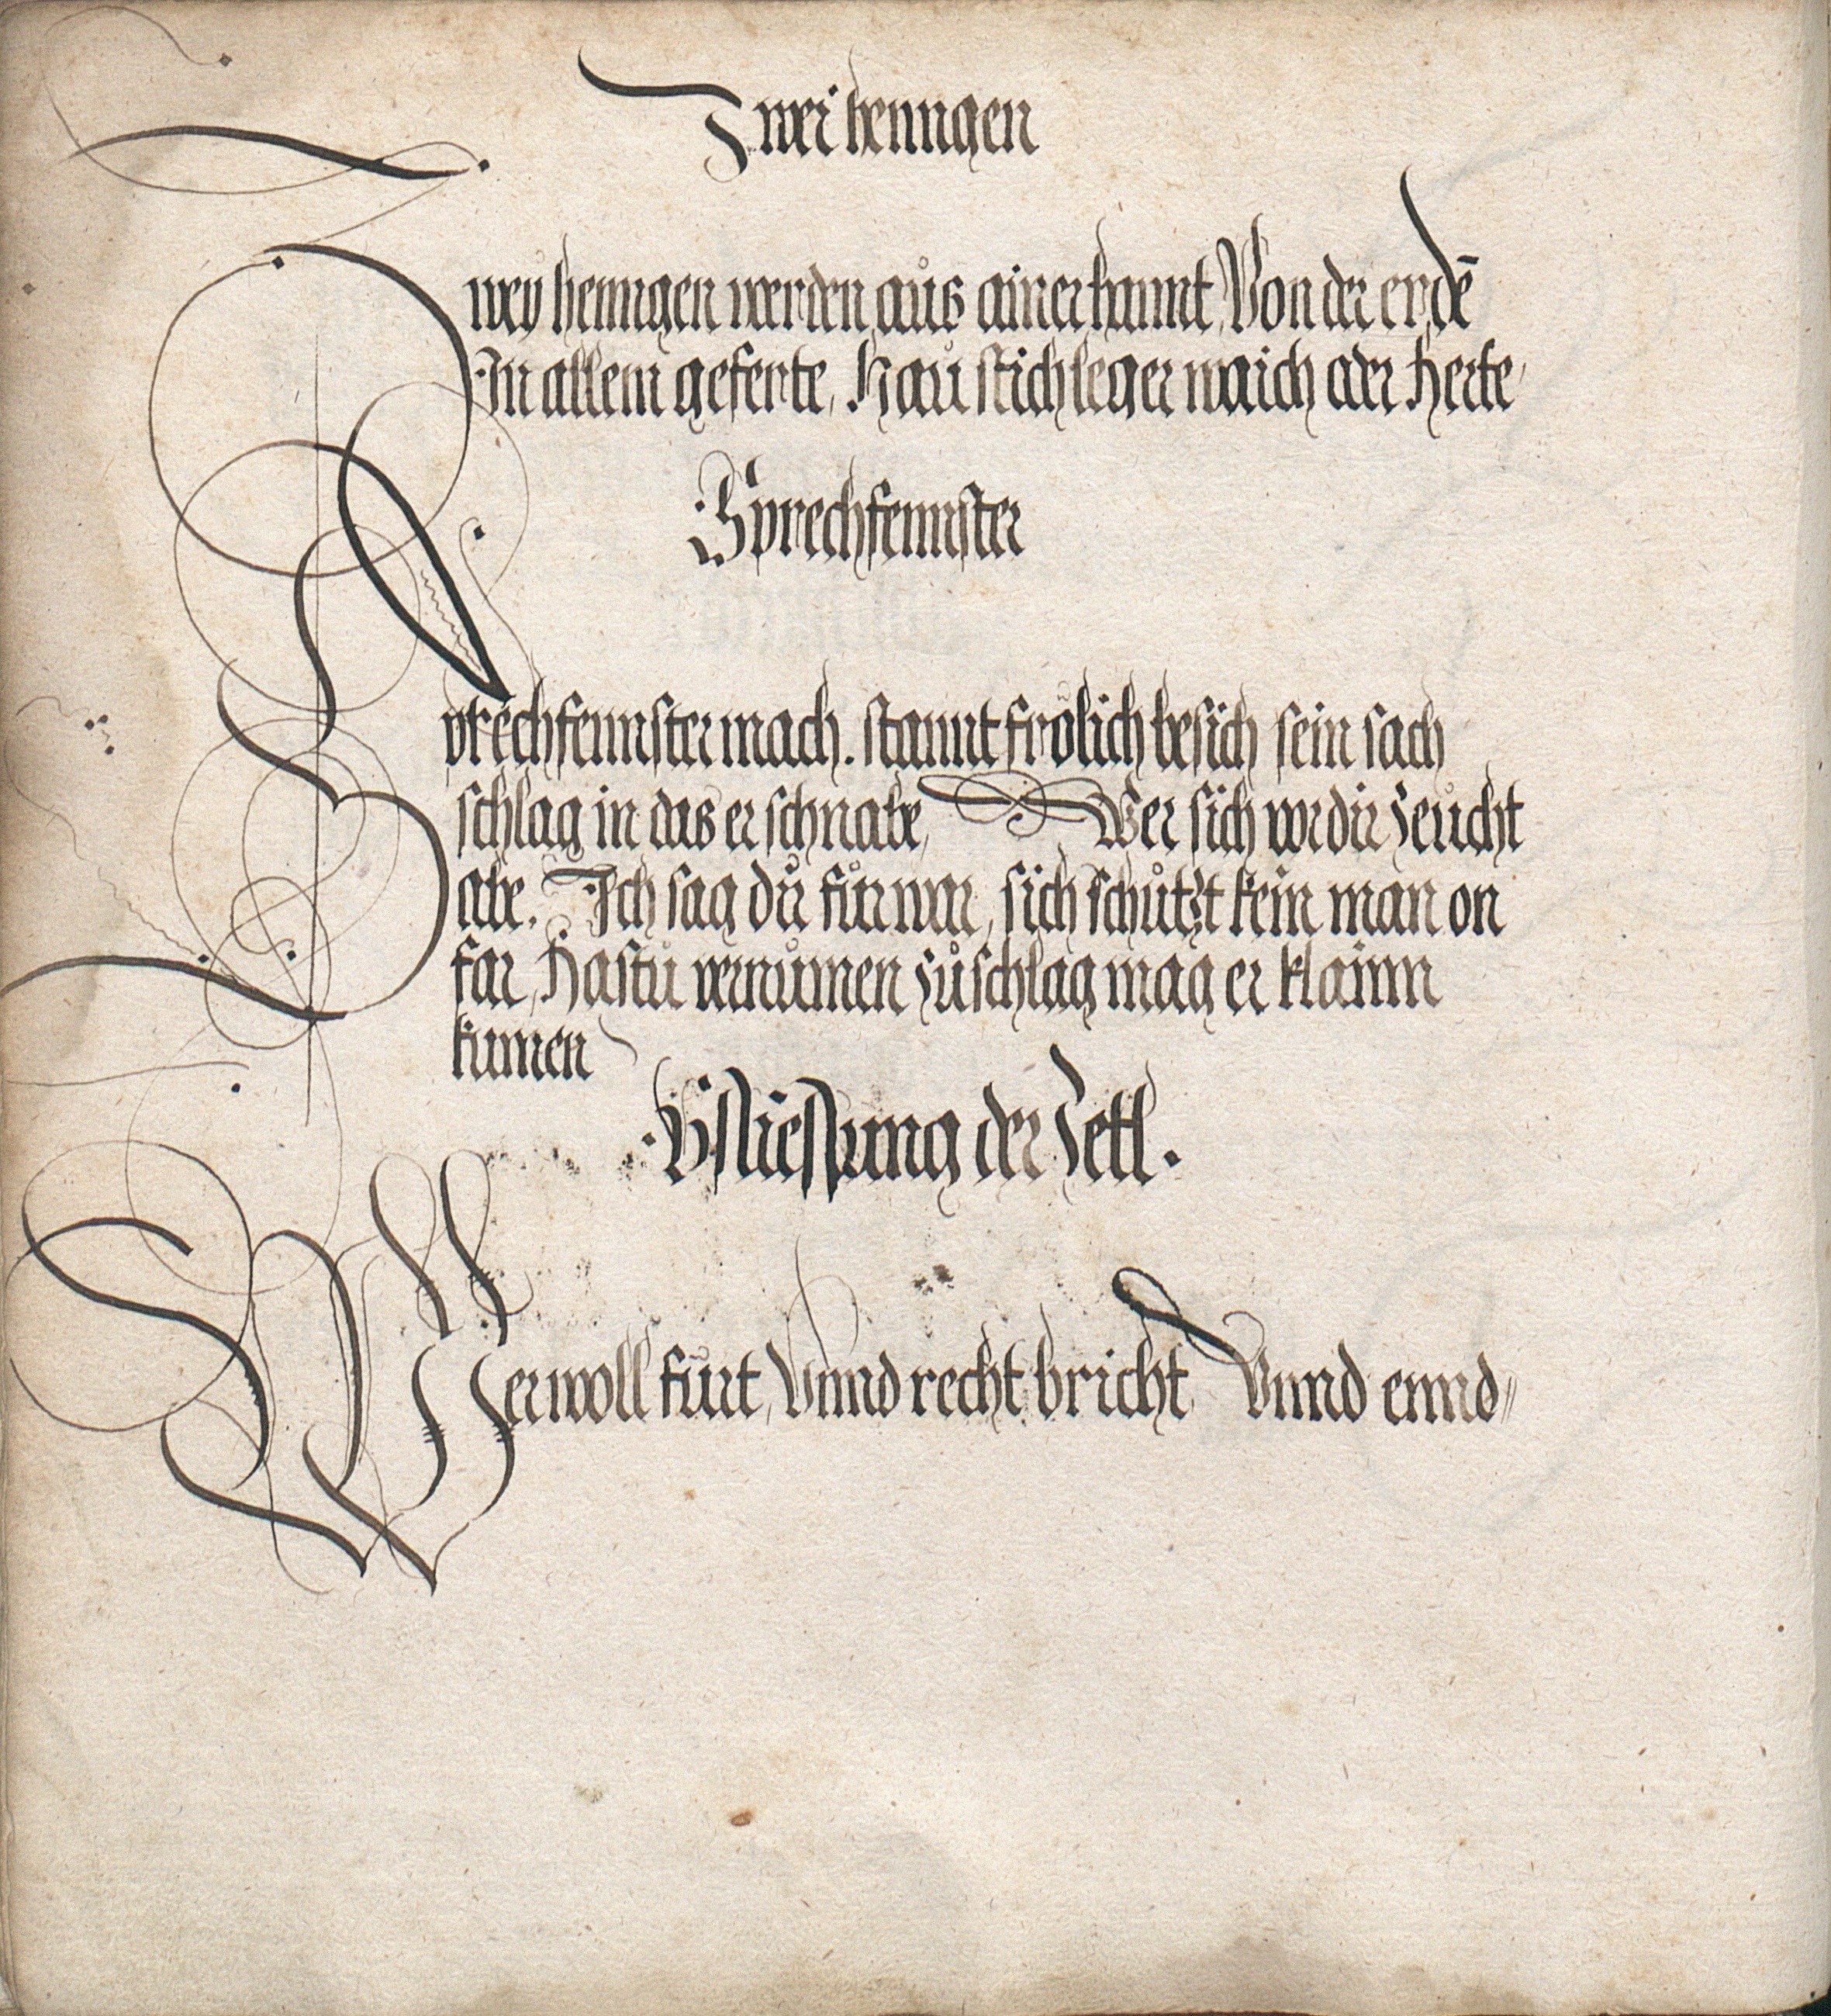 Zwei henngen
Zwey henngen werden aŭs ainer hannt, Von der erdē
In allem geferte, Haŭ stich leger waich oder herte,
Sprechfennster
Sprechfennster mach. stannt frölich besich sein sach
schlag in das er schnabe, Wer sich vor dir zeŭcht
abe. Ich sag dŭ fŭr war, sich schŭtzt kein man on
far, Hastŭ vernŭmen zŭschlag mag er klainn
kumen
Bsliessung der Zettl.
Wer woll fŭrt, Vnnd recht bricht, Vnnd ennd〃